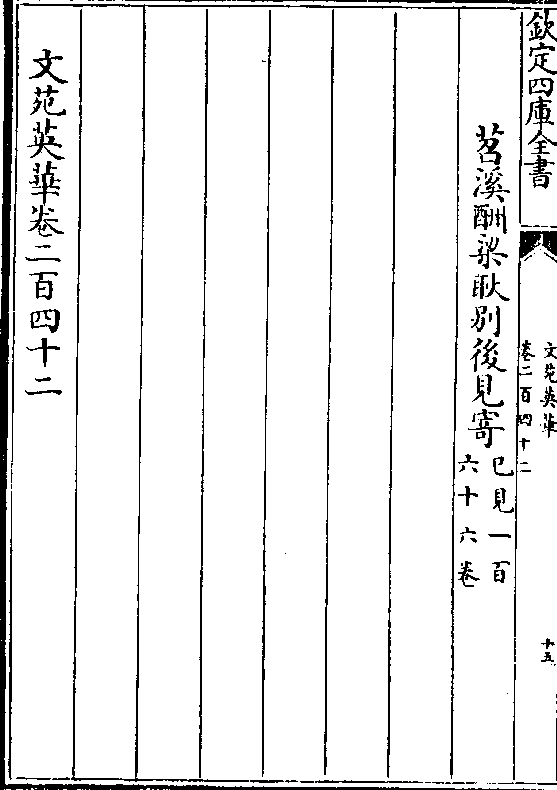 欽定四庫全書
文苑英華
卷二百四十二
十五
苕溪酬梁耿别後見寄
已見一百
六十六卷
文苑英華卷二百四十二